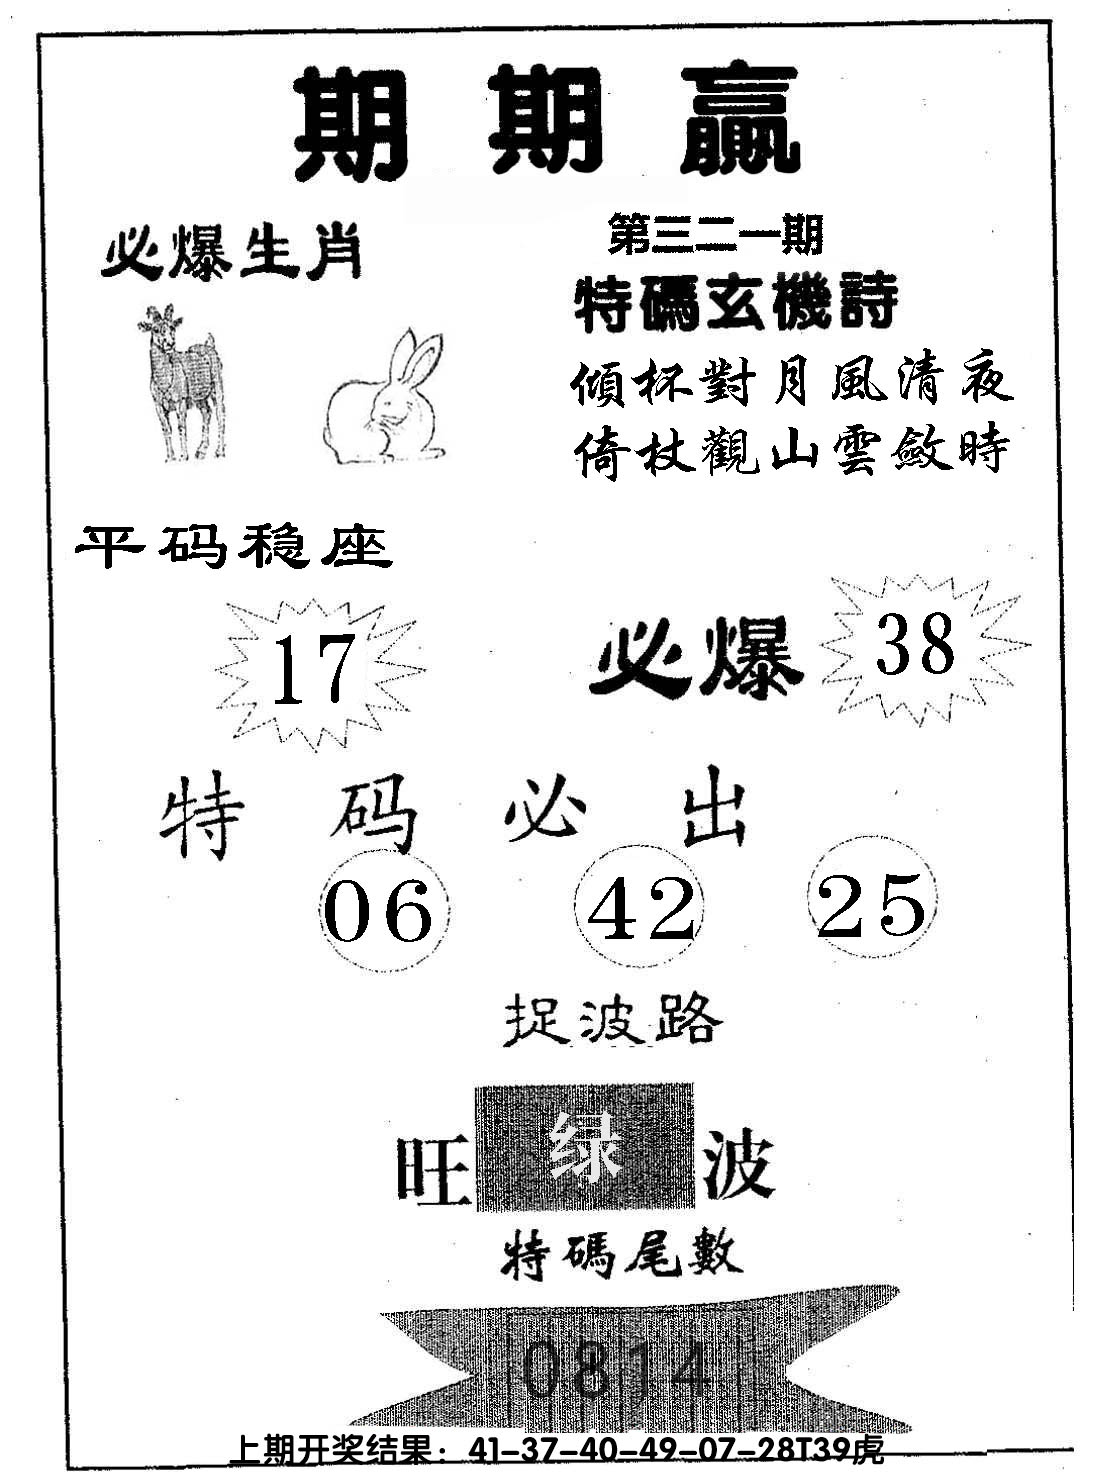 期期贏
必爆生肖
第三二一期
特碼玄機詩
傾杯對月風清夜
倚杖觀山雲斂時
平码稳座
17
必爆
38
特码必出
06 42 25
捉波路
旺绿波
特碼尾數
0814
上期开奖结果：41-37-40-49-07-28T39虎